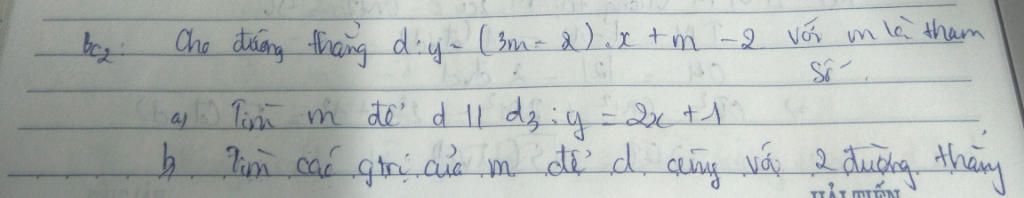 bc2: Cho đường thẳng d: y = (3m - 2).x + m - 2 với m là tham
số
a, Tìm m để d // d3: y = 2x + 1
b, Tìm các gtrị của m để d cùng với 2 đường thẳng
HẢI TIẾN